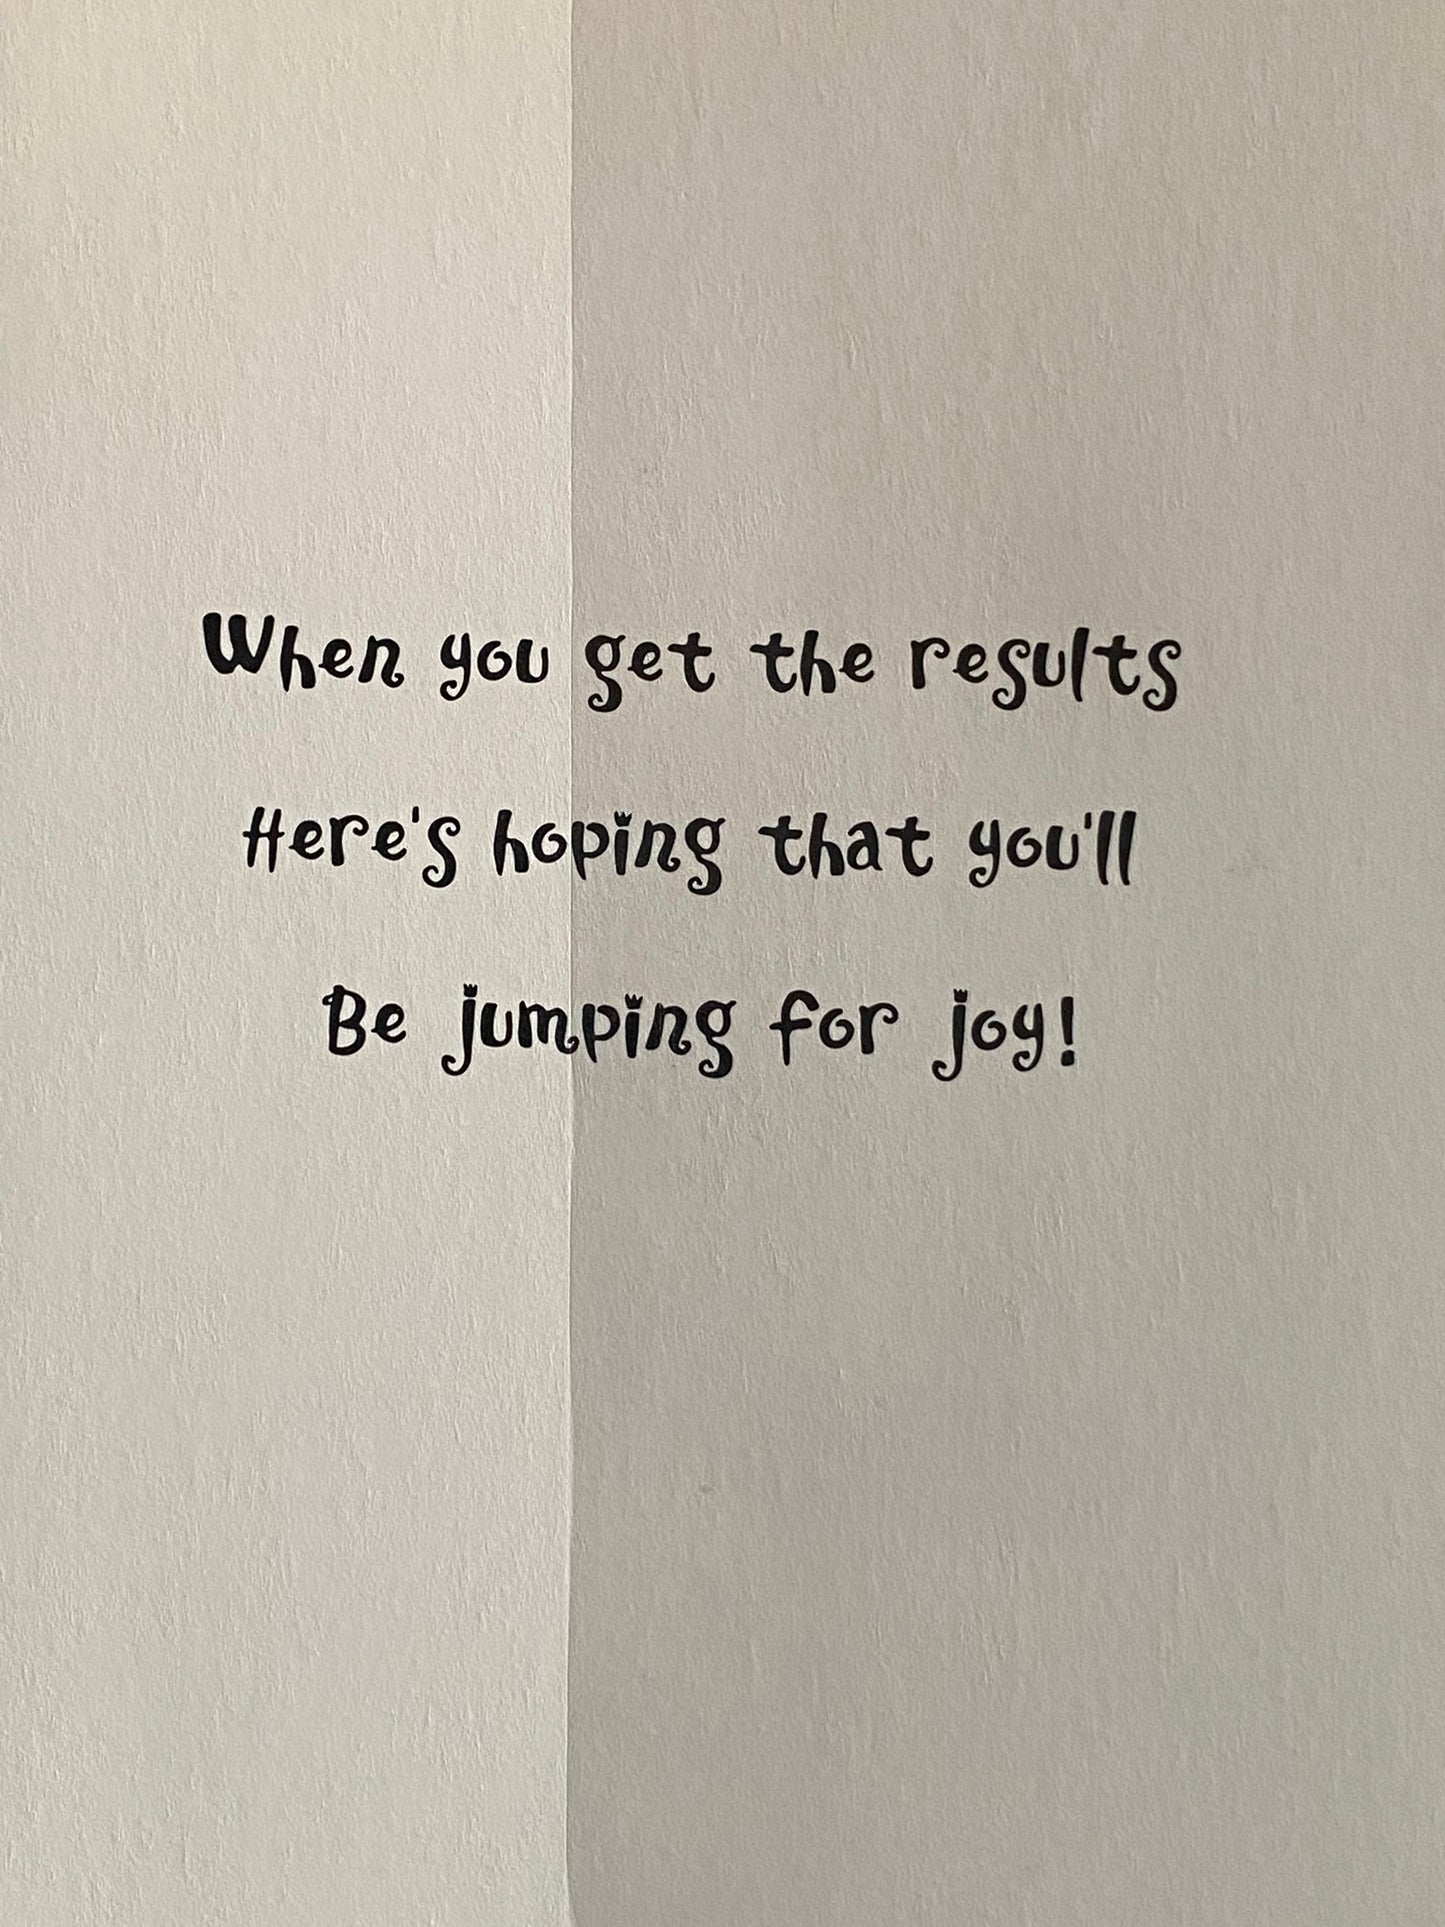 When you get the results
Here's hoping that you'll
Be jumping for joy!